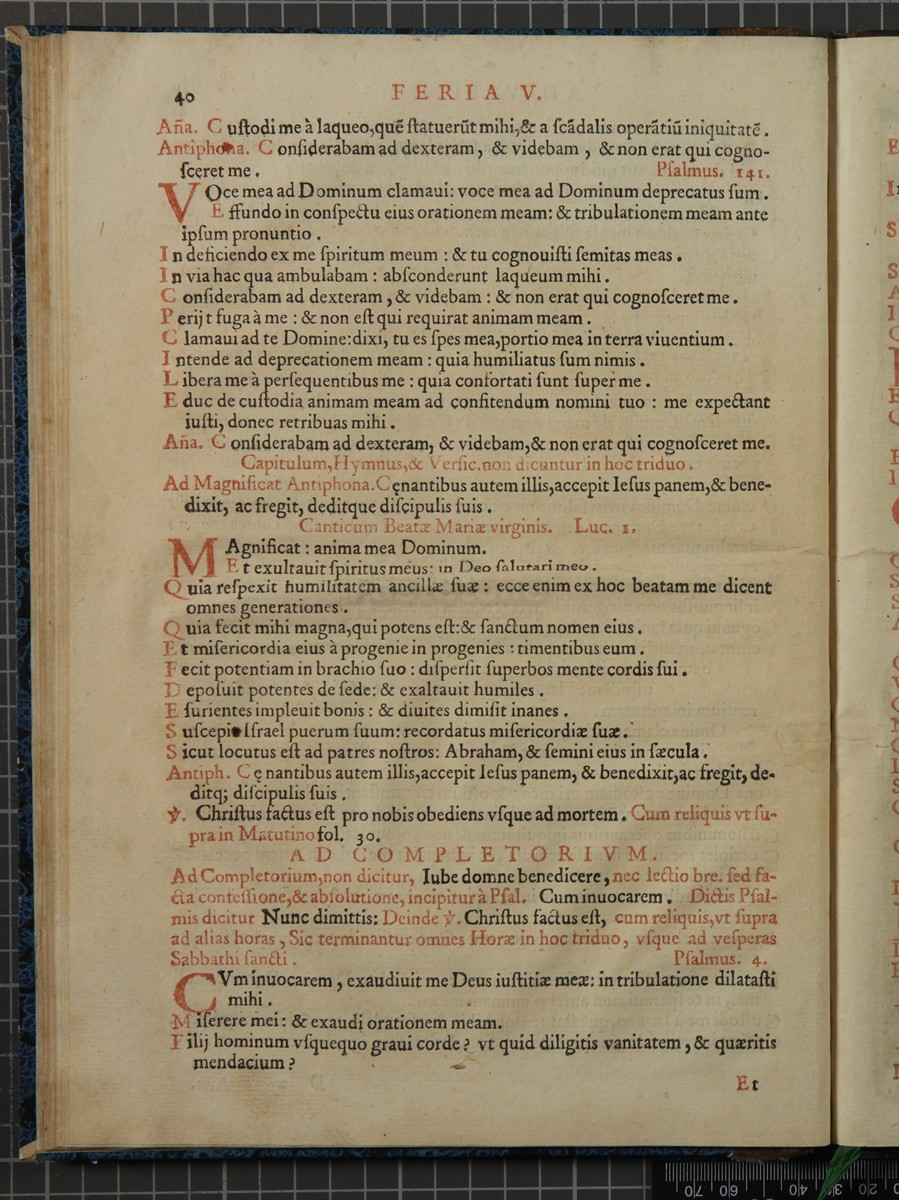 40
FERIA V.
Añа. Cuſtodi me à laqueo,quē ſtatuerūt mihi,& a ſcādalis operātiū iniquitatē.
Antiphona. Conſiderabam ad dexteram, & videbam, & non erat qui cogno-
ſceret me. Pſalmus. 141.
VOce mea ad Dominum clamaui: voce mea ad Dominum deprecatus ſum.
Effundo in conſpectu eius orationem meam: & tribulationem meam ante
ipſum pronuntio.
In deficiendo ex me ſpiritum meum : & tu cognouiſti ſemitas meas.
In via hac qua ambulabam : abſconderunt laqueum mihi.
Conſiderabam ad dexteram, & videbam : & non erat qui cognoſceret me.
Perijt fuga à me : & non eſt qui requirat animam meam.
Clamaui ad te Domine: dixi, tu es ſpes mea,portio mea in terra viuentium.
Intende ad deprecationem meam : quia humiliatus ſum nimis.
Libera me à perſequentibus me : quia confortati ſunt ſuper me.
Educ de cuſtodia animam meam ad confitendum nomini tuo : me expectant
iuſti, donec retribuas mihi.
Aña. Conſiderabam ad dexteram, & videbam,& non erat qui cognoſceret me.
Capitulum, Hymnus,& Verſic. non dicuntur in hoc triduo.
Ad Magnificat Antiphona. Cęnantibus autem illis,accepit Ieſus panem,& bene-
dixit, ac fregit, deditque diſcipulis ſuis.
Canticum Beatæ Mariæ virginis. Luc. 1.
MAgnificat : anima mea Dominum.
Et exultauit ſpiritus meus: in Deo ſalutari meo.
Quia reſpexit humilitatem ancillæ ſuæ : ecce enim ex hoc beatam me dicent
omnes generationes.
Quia fecit mihi magna,qui potens eſt:& ſanctum nomen eius.
Et miſericordia eius à progenie in progenies : timentibus eum.
Fecit potentiam in brachio ſuo : diſperſit ſuperbos mente cordis ſui.
Depoſuit potentes de ſede: & exaltauit humiles.
Eſurientes impleuit bonis : & diuites dimiſit inanes.
Suſcepit Iſrael puerum ſuum: recordatus miſericordiæ ſuæ.
Sicut locutus eſt ad patres noſtros: Abraham, & ſemini eius in ſæcula.
Antiph. Cęnantibus autem illis,accepit Ieſus panem, & benedixit,ac fregit, de-
ditq; diſcipulis ſuis.
℣. Chriſtus factus eſt pro nobis obediens vſque ad mortem. Cum reliquis vt ſu-
pra in Matutino fol. 30.
AD COMPLETORIVM.
Ad Completorium,non dicitur, Iube domne benedicere, nec lectio bre. ſed fa-
cta confeſſione,& abſolutione, incipitur à Pſal. Cum inuocarem. Dictis Pſal-
mis dicitur Nunc dimittis: Deinde ℣. Chriſtus factus eſt, cum reliquis,vt ſupra
ad alias horas, Sic terminantur omnes Horæ in hoc triduo, vſque ad veſperas
Sabbathi ſancti. Pſalmus. 4.
CVm inuocarem, exaudiuit me Deus iuſtitiæ meæ: in tribulatione dilataſti
mihi.
Miſerere mei : & exaudi orationem meam.
Filij hominum vſquequo graui corde? vt quid diligitis vanitatem, & quæritis
mendacium?
Et